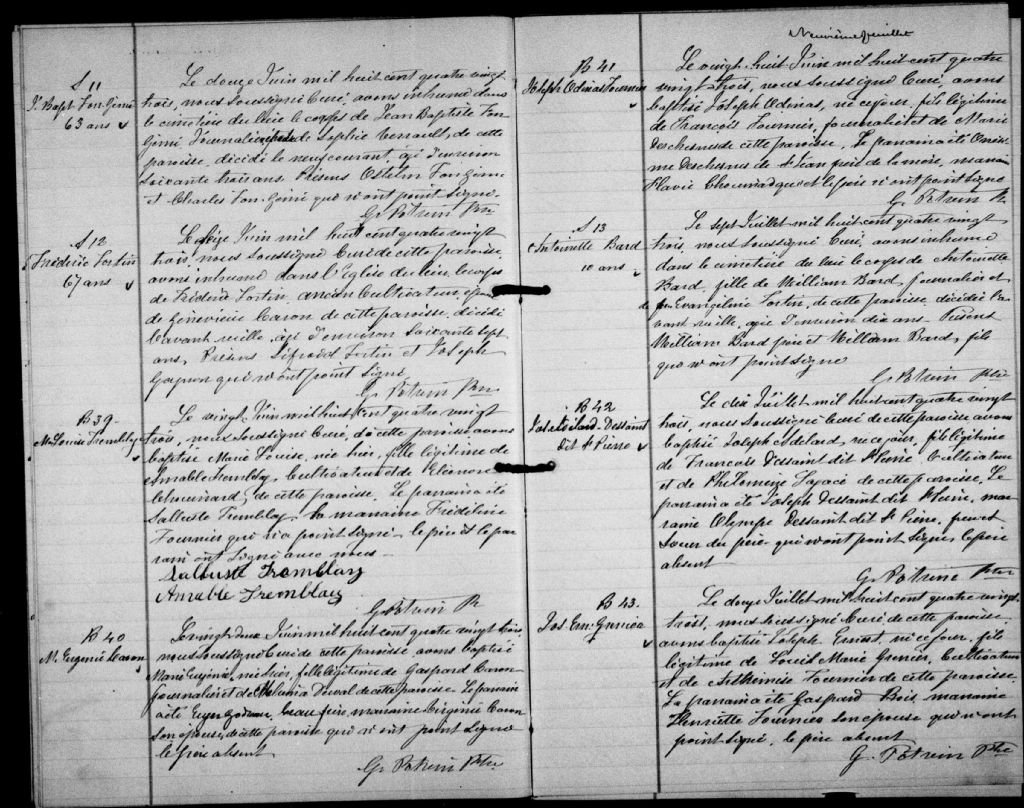 S 11
J. Bapt. Fongémi
63 ans
Le douze Juin mil huit cent quatre vingt
trois, nous soussigné Curé, avons inhumé dans
le cimetière du lieu le corps de Jean Baptiste Fon-
gémi Journalier de Sophie de cette
paroisse, décédé le neuf courant, agé d'environ
Soixante trois ans. Présens Fongémi
et Charles Fongémi qui n'ont point signé.
G. Potvin Ptre
S 12
Fréderic Fortin
67 ans
Le seize Juin mil huit cent quatre vingt
trois, nous soussigné Curé de cette paroisse,
avons inhumé dans l'Eglise du lieu le corps
de Fréderic Fortin, ancien Cultivateur, époux
de Geneviève Caron de cette paroisse, décédé
l'avant veille, agé d'environ soixante sept
ans, Présens Fortin et Joseph
Gagnon qui n'ont point signé
G. Potvin Ptre
B 39
M. Louise Tremblay
Le vingt Juin mil huit cent quatre vingt
trois, nous soussigné Curé, de cette paroisse avons
baptisé Marie Louise, née hier, fille légitime de
Amable Tremblay, Cultivateur et de Eléonore
Chouinard, de cette paroisse. Le parrain a été
Salluste Tremblay, la marraine
Fournier qui n'a point signé. le père et le par
rain ont signé avec nous —
Salluste Tremblay
Amable Tremblay
G. Potvin Ptre
B 40
M. Eugénie Caron
Le vingt deux Juin mil huit cent quatre vingt trois,
nous soussigné Curé de cette paroisse avons baptisé
Marie Eugénie, née hier, fille légitime de Gaspard Caron
journalier et de Duval de cette paroisse. Le parrain
a été beau frère, marraine Virginie Caron
son épouse, de cette paroisse qui n'ont point signé
le père absent
G. Potvin Ptre
Neuvième feuillet
B 41
Joseph Odénas Fournier
Le vingt-huit Juin mil huit cent quatre
vingt trois, nous soussigné Curé, avons
baptisé Joseph Odénas, né ce jour, fils légitime
de François Fournier, journalier et de Marie
Deschesnes de cette paroisse. Le parrain a été
Deschesnes de St Jean père de la mère, marraine
Flavie Chouinard qui et le père n'ont point signé
G. Potvin Ptre
S 13
Antoinette Bard
10 ans
Le sept Juillet mil huit cent quatre vingt
trois, nous soussigné Curé, avons inhumé
dans le cimetière du lieu le corps de Antoinette
Bard, fille de William Bard, journalier et
de feu Evangeline Fortin, de cette paroisse, décédée l'a-
vant veille, agée d'environ dix ans. Présens
William Bard père et William Bard, fils
qui n'ont point signé
G. Potvin Ptre
B 42
Jos. Adélard Dessaint
dit St Pierre
Le dix Juillet mil huit cent quatre vingt
trois, nous soussigné Curé de cette paroisse avons
baptisé Joseph Adélard, né ce jour, fils légitime
de François Dessaint dit St Pierre Cultivateur
et de Philomene Lagacé de cette paroisse. Le
parrain a été Joseph Dessaint dit St Pierre, mar-
raine Olympe Dessaint dit St Pierre, frère et
soeur du père qui n'ont point signé, le père
absent
G. Potvin Ptre
B 43.
Jos. Ern. Grenier
Le douze Juillet mil huit cent quatre vingt
trois, nous soussigné Curé de cette paroisse
avons baptisé Joseph Ernest, né ce jour, fils
légitime de Louis Marie Grenier, Cultivateur
et de Arthémise Fournier de cette paroisse.
Le parrain a été Gaspard Bois, marraine
Henriette Fournier son épouse qui n'ont
point signé, le père absent
G. Potvin Ptre